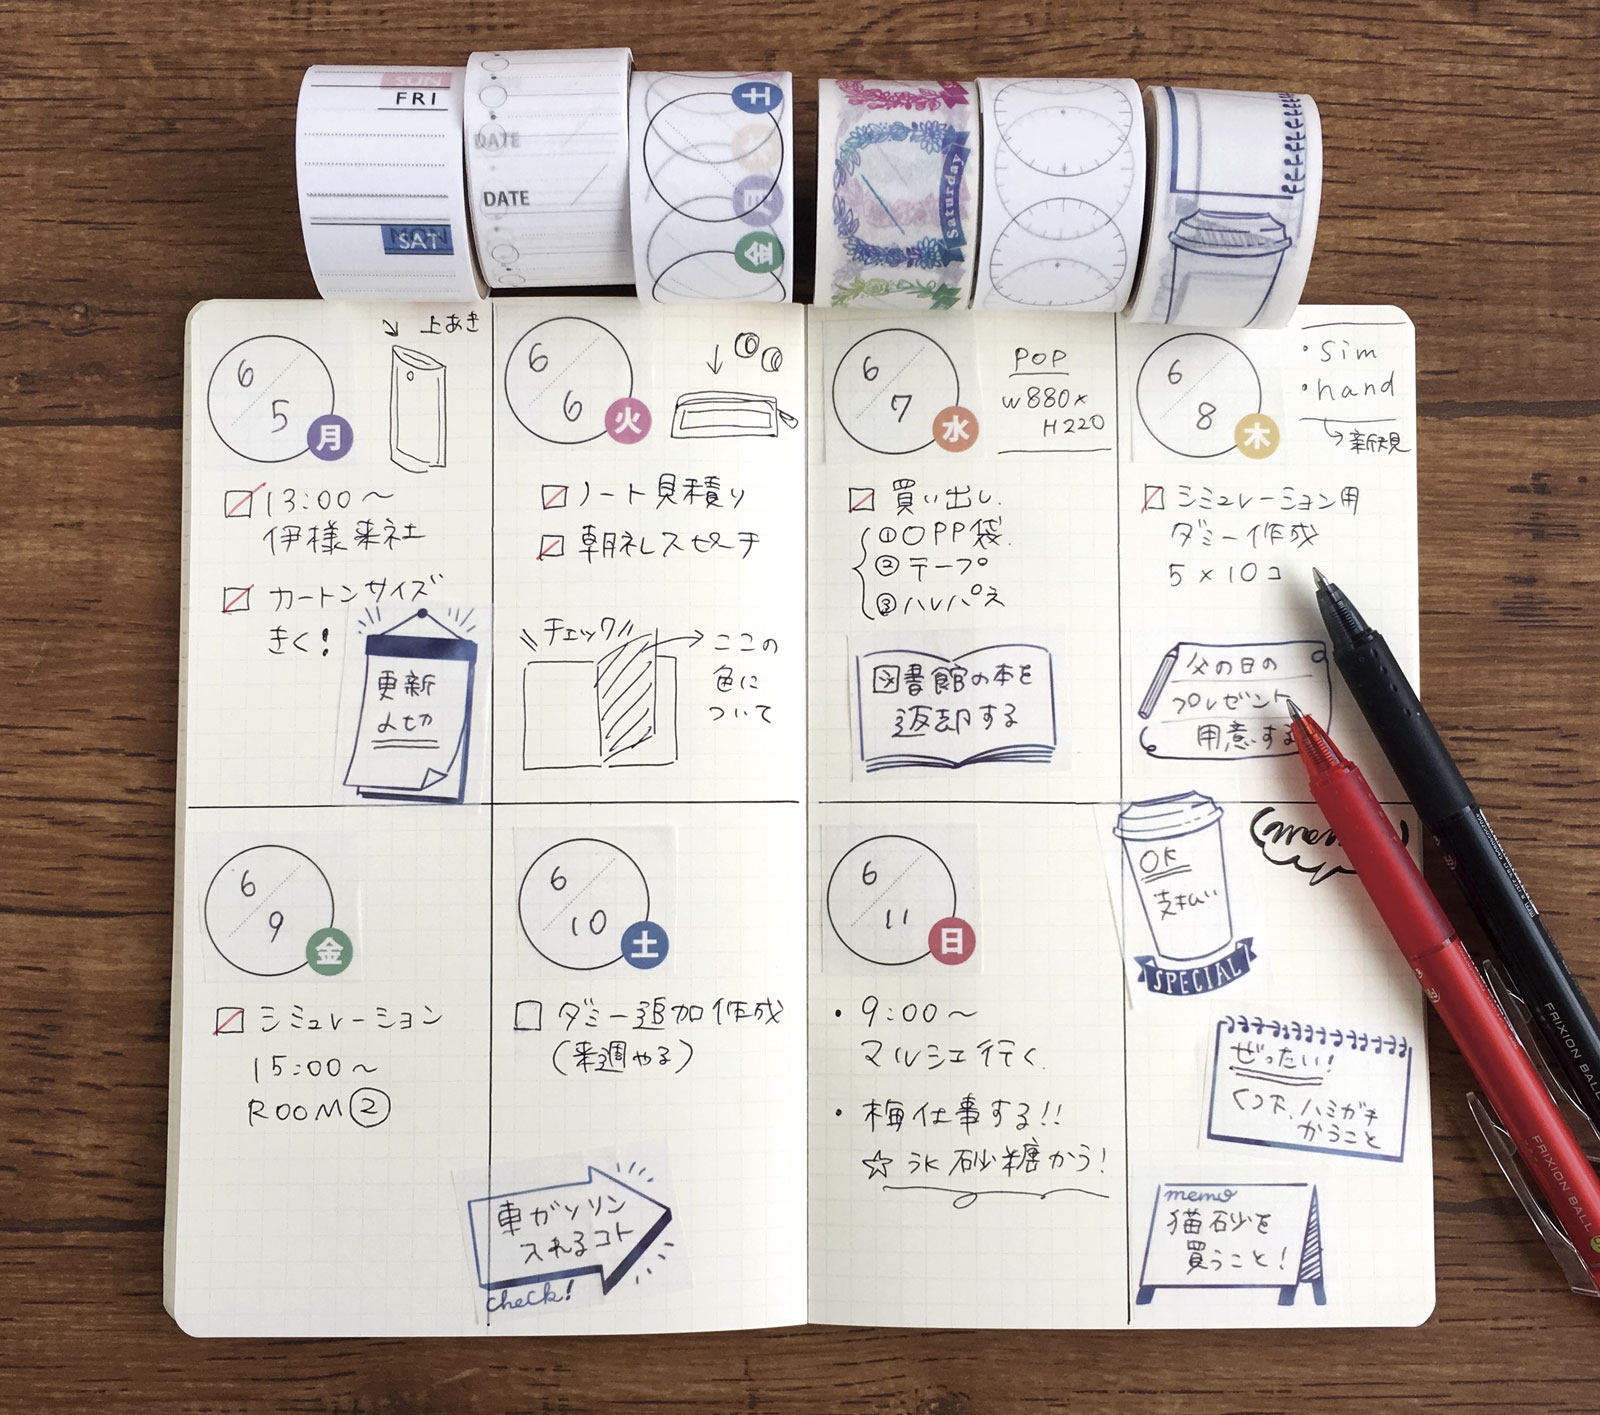 SUN
FRI
MON
SAT
DATE
DATE
土
日
金
Saturday
6/5
月
上あき
13:00～
伊様来社
カートンサイズ
きく!
更新
〆切
6/6
火
ノート見積り
朝礼スピーチ
チェック
ここの
色に
ついて
6/7
水
POP
W880×
H220
買い出し
①OPP袋
②テープ
③ハレパネ
図書館の本を
返却する
6/8
木
・sim
・hand
新規
シミュレーション用
ダミー作成
5×10コ
父の日の
プレゼント
用意する
6/9
金
シミュレーション
15:00～
ROOM②
6/10
土
ダミー追加作成
(来週やる)
車ガソリン
入れるコト
check!
6/11
日
・9:00～
マルシェ行く
・梅仕事する!!
☆氷砂糖かう!
OK
支払い
SPECIAL
ぜったい!
くつ下、ハミガキ
かうこと
memo
猫砂を
買うこと!
FRIXION BALL
FRIXION BALL